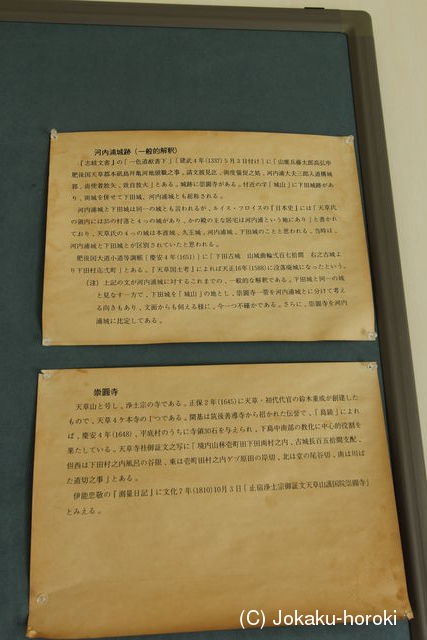 河内浦城跡（一般的解釈）
『志岐文書』の「一色道猷書下」（建武４年(1337)５月３日付け）に「山鹿兵藤太郎高弘申
肥後国天草郡本砥島并亀河地頭職之事、請文披見訖、御度催促之処、河内浦大夫三郎入道構城
郭、由使者放矢、致自放火」とある。城跡に崇圓寺がある。付近の字「城山」に下田城跡があ
り、両城を併せて下田城、河内浦城とも総称される。
河内浦城と下田城は同一の城とも言われるが、ルイス・フロイスの『日本史』には「天草氏
の領内には35の村落と４つの城があり、かの殿の主な居宅は河内浦という地にあり」と書かれ
ており、天草氏の４つの城は本渡城、久玉城、河内浦城、下田城のことと思われる。当時は、
河内浦城と下田城とが区別されていたと思われる。
肥後国大道小道等調帳（慶安４年(1651)）に「下田古城 山城曲輪弐百七拾間 右之古城よ
り下田村迄弐町」とある。『天草国土考』によれば天正16年(1588)に没落廃城になったという。
（注）上記の文が河内浦城に対するこれまでの、一般的な解釈である。下田城と同一の城
と見なす一方で、下田城を「城山」の地とし、崇圓寺一帯を河内浦城とに分けて考え
る向きもあり、文面からも伺える様に、今一つ不確かである。さらに、崇圓寺を河内
浦城に比定してある。
崇圓寺
天草山と号し、浄土宗の寺である。正保２年(1645)に天草・初代代官の鈴木重成が創建した
もので、天草４ケ本寺の１つである。開基は筑後善導寺から招かれた伝誉で、「島鏡」によれ
ば、慶安４年(1648)、平床村のうちに寺領30石を与えられ、下島中南部の教化に中心的役割を
果たしている。天草寺社御証文之写に「境内山林壱町田下田両村之内、古城長百五拾間支配、
但西は下田村之内風呂の谷限、東は壱町田村之内ゲブ原田の岸切、北は堂の尾谷切、南は川ば
た道切之事」とある。
伊能忠敬の『測量日記』に文化７年(1810)10月３日「止宿浄土宗御証文天草山護国院崇圓寺」
とみえる。
(C) Jokaku-horoki